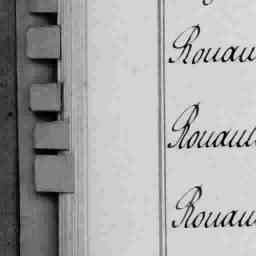 Rouau
Rouaul
Rouau